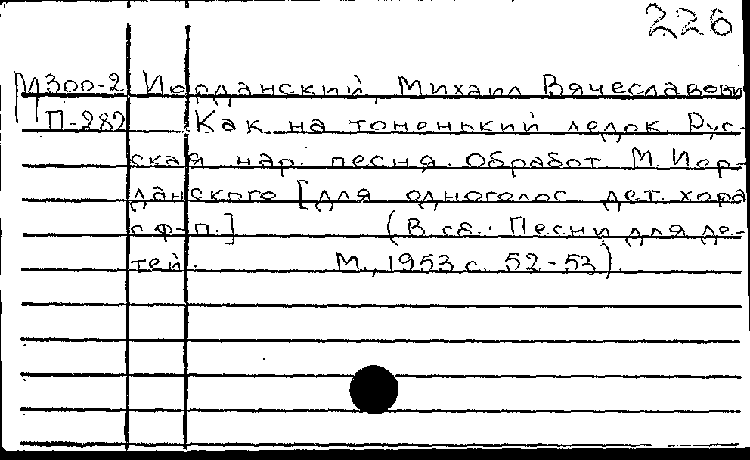 226
М300-2 Иорданский, Михаил Вячеславови
П-282 Как на тоненький ледок. Рус-
ская нар. песня. Обработ. М. Иор-
данского [для одноголос. дет. хора
с ф-п.] (В сб.: Песни для де-
тей. М., 1953 с. 52-53).